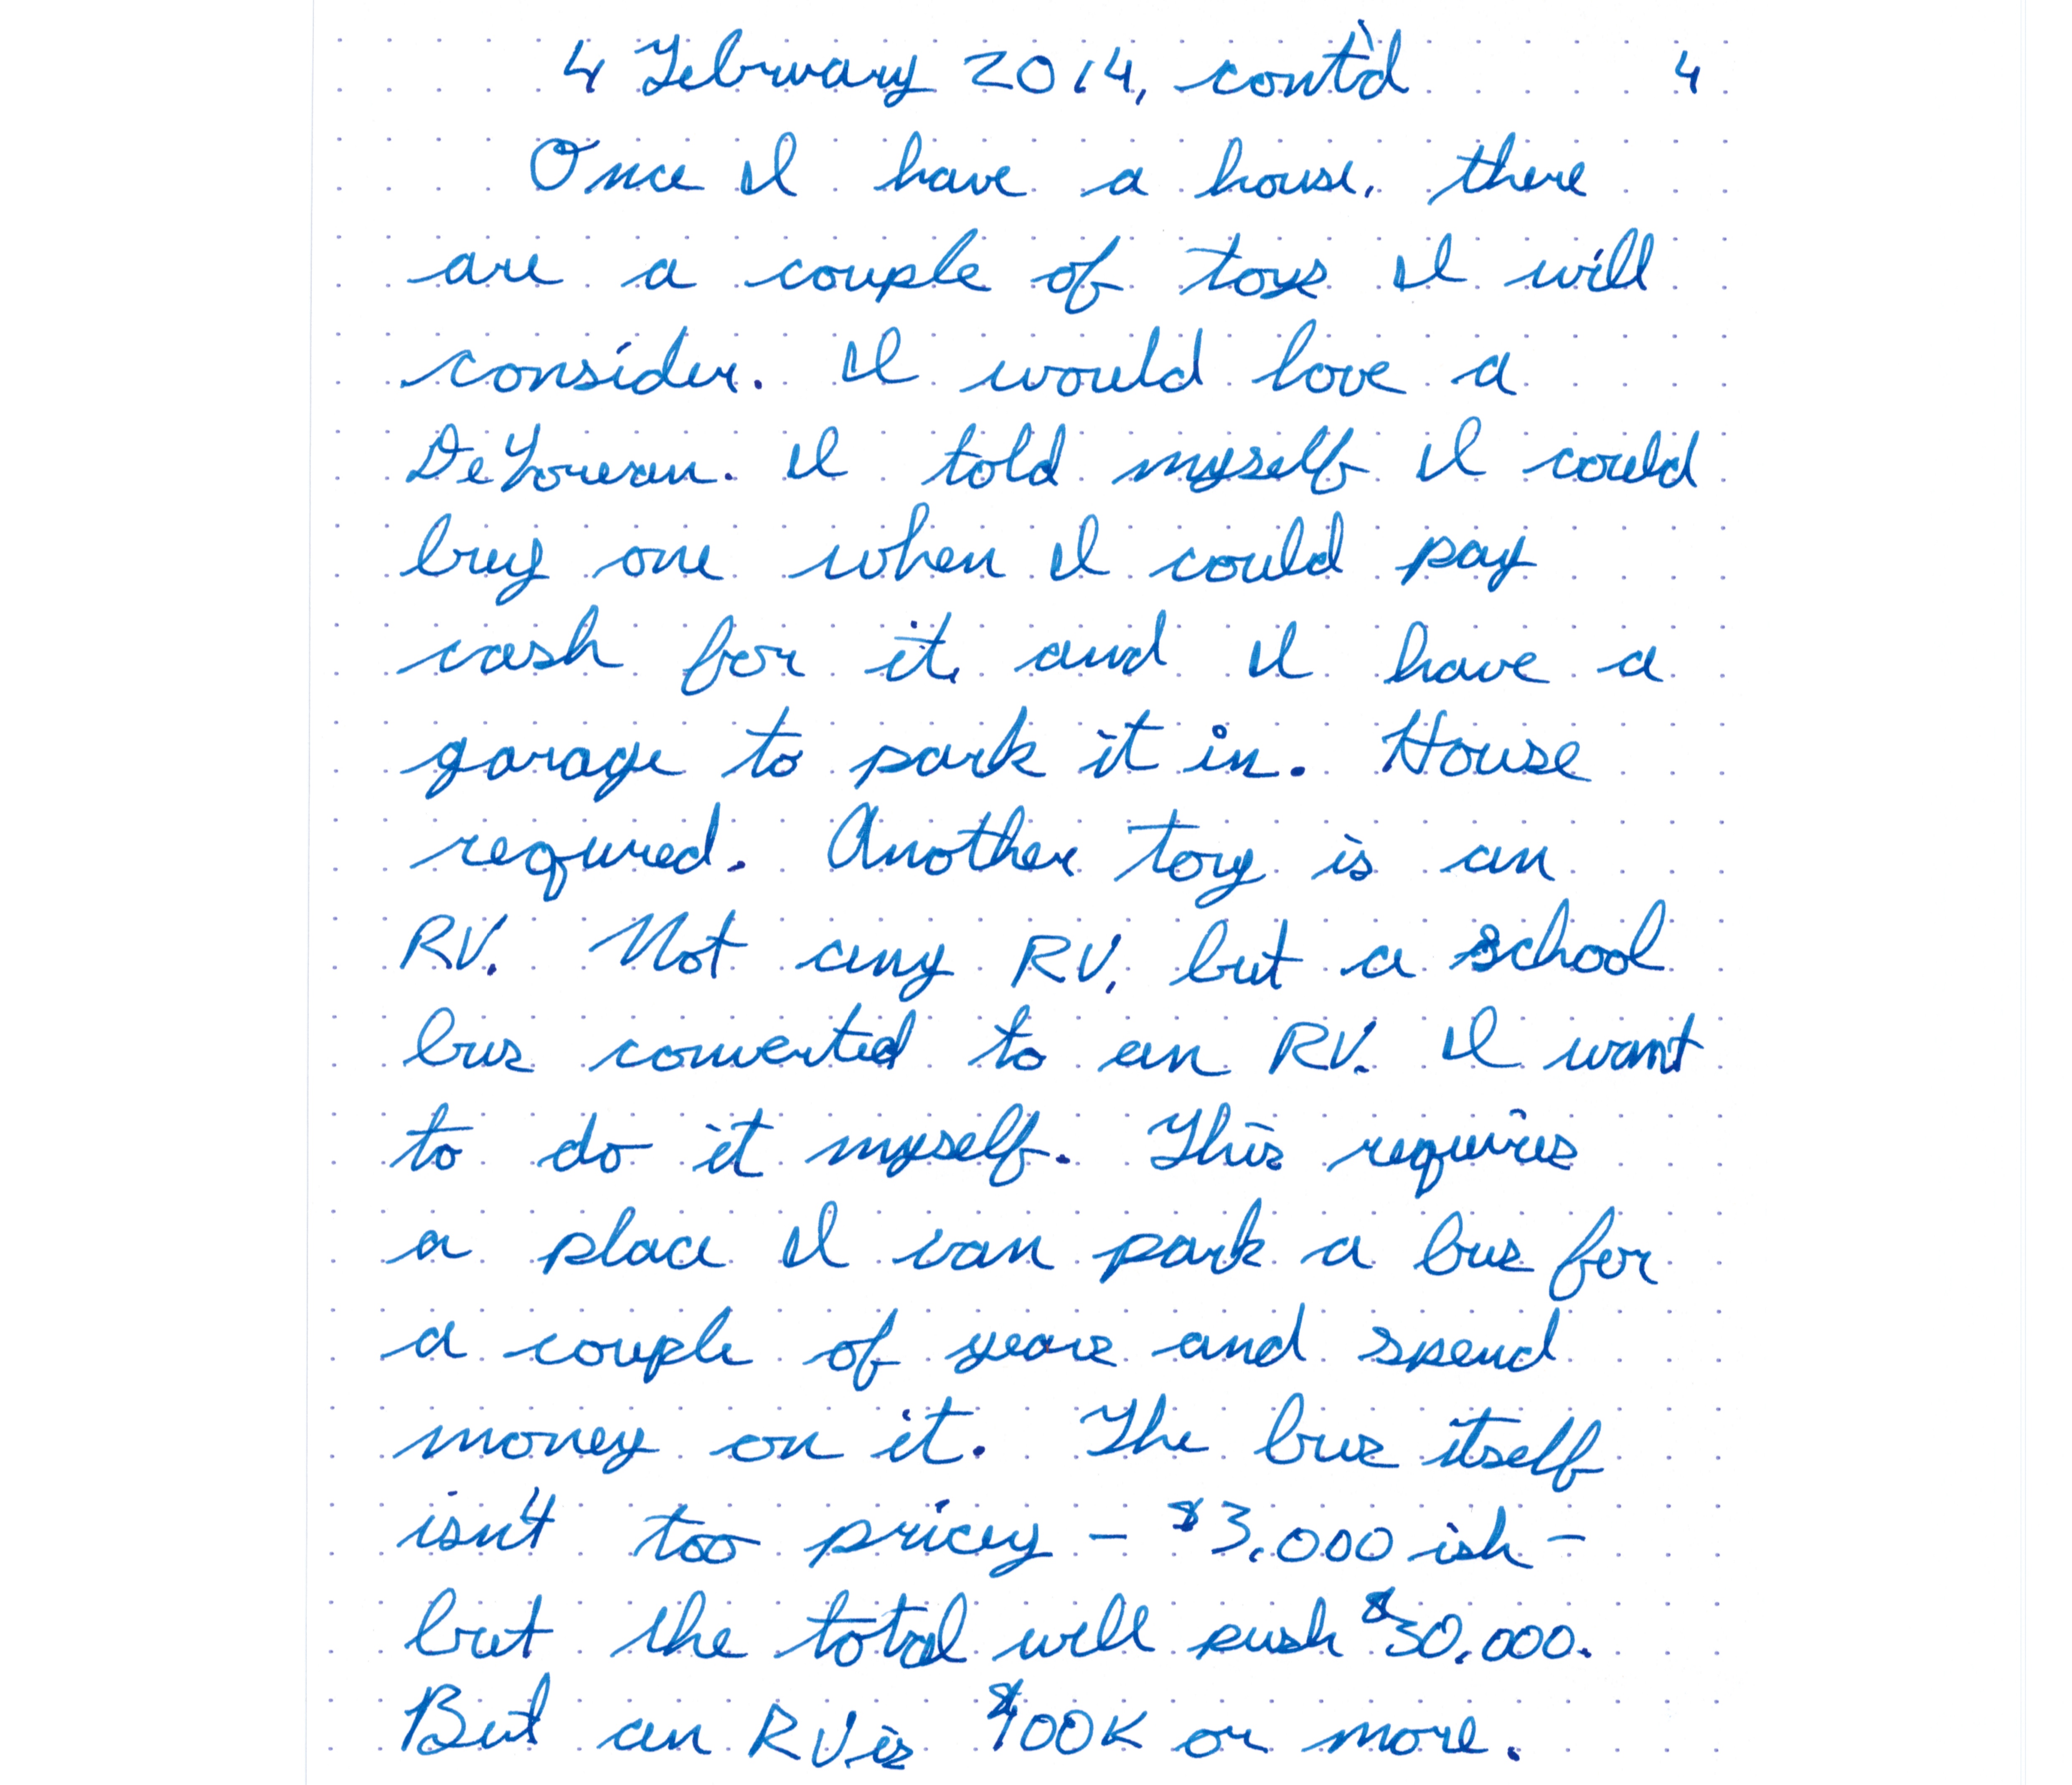 4 February 2014, cont'd 4
Once I have a house, there
are a couple of toys I will
consider. I would love a
DeLorean. I told myself I could
buy one when I could pay
cash for it, and I have a
garage to park it in. House
required. Another toy is an
RV. Not any RV, but a school
bus converted to an RV. I want
to do it myself. This requires
a place I can park a bus for
a couple of years and spend
money on it. The bus itself
isn't too pricey – $3,000 ish –
but the total will push $30,000.
But an RV is $100K or more.